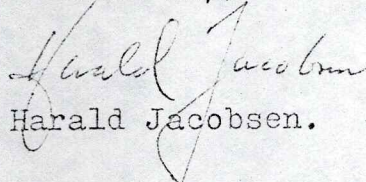 Harald Jacobsen
Harald Jacobsen.